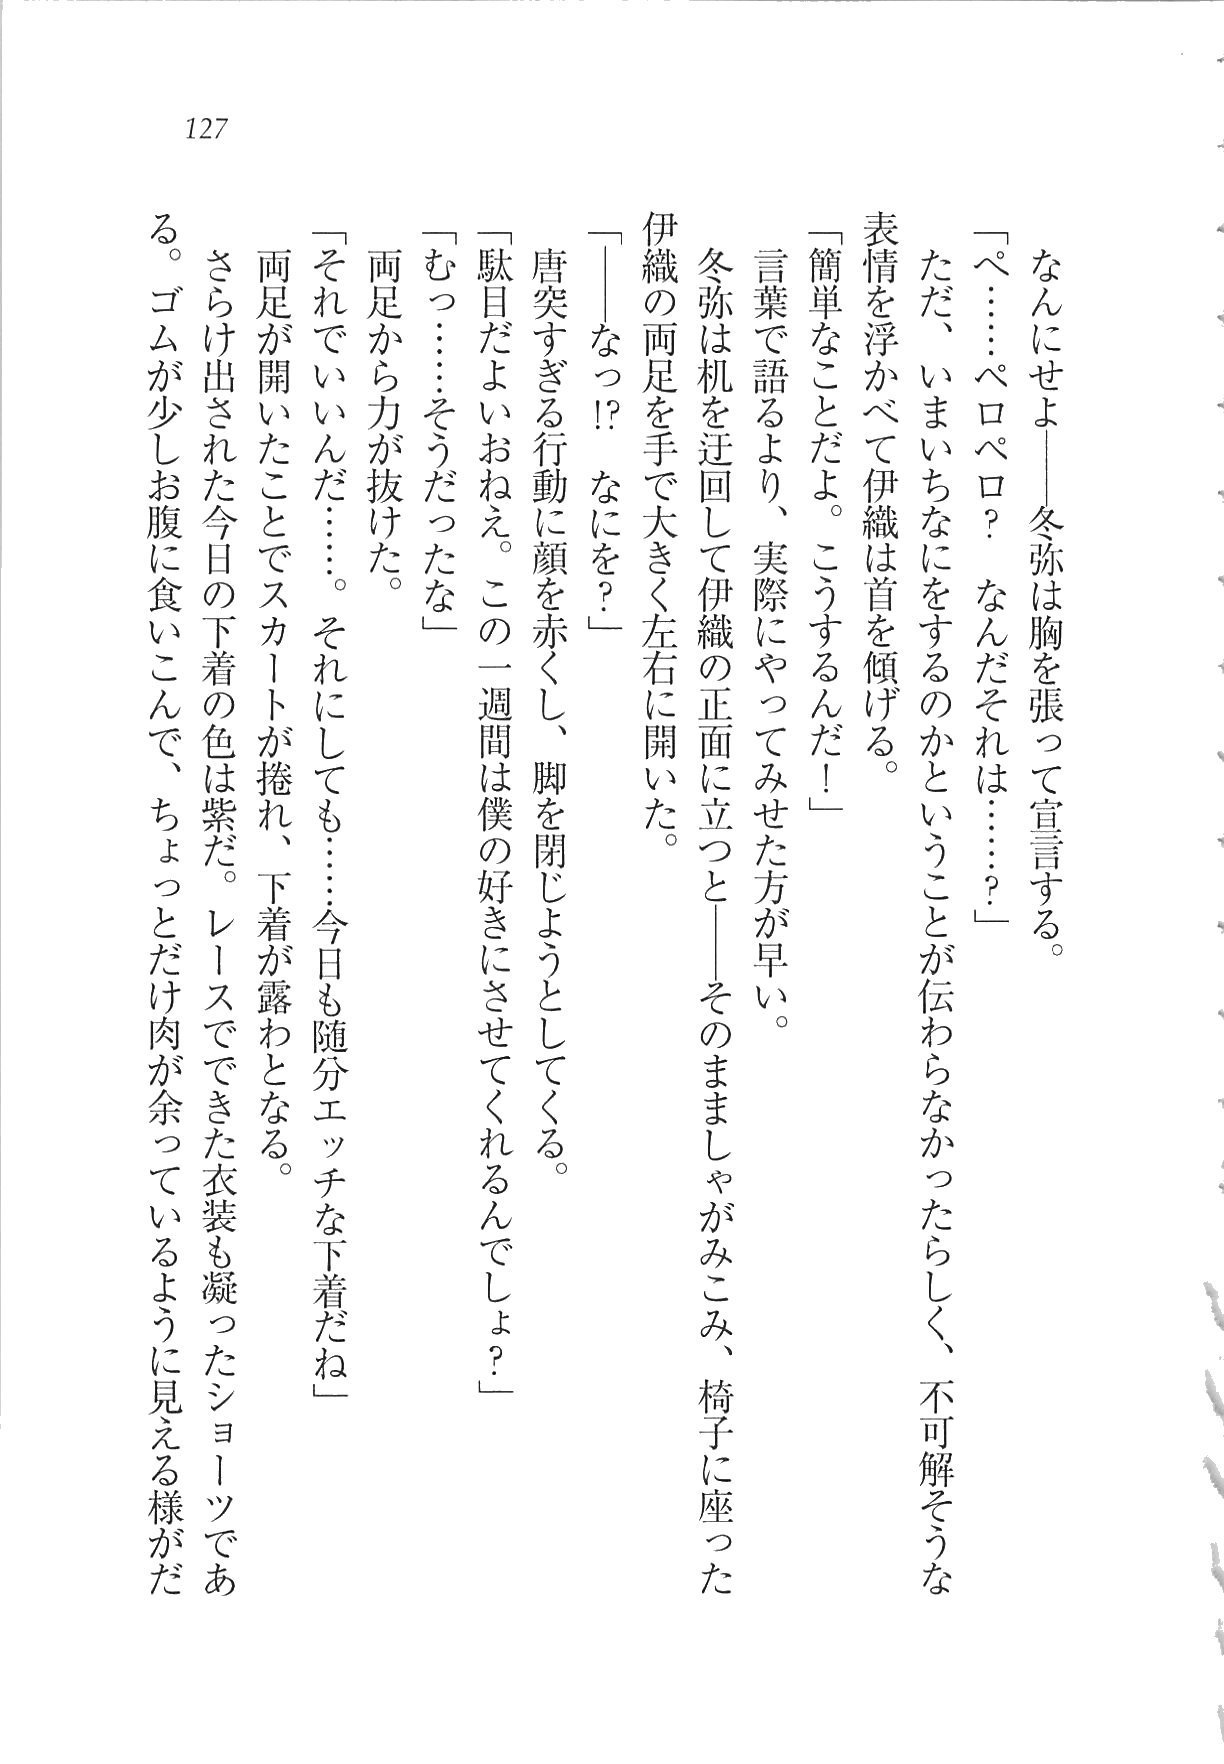 127
なんにせよ――冬弥は胸を張って宣言する。
「ペ……ペロペロ？　なんだそれは……？」
ただ、いまいちなにをするのかということが伝わらなかったらしく、不可解そうな
表情を浮かべて伊織は首を傾げる。
「簡単なことだよ。こうするんだ！」
言葉で語るより、実際にやってみせた方が早い。
冬弥は机を迂回して伊織の正面に立つと――そのまましゃがみこみ、椅子に座った
伊織の両足を手で大きく左右に開いた。
「――なっ!?　なにを？」
唐突すぎる行動に顔を赤くし、脚を閉じようとしてくる。
「駄目だよいおねえ。この一週間は僕の好きにさせてくれるんでしょ？」
「むっ……そうだったな」
両足から力が抜けた。
「それでいいんだ……。それにしても……今日も随分エッチな下着だね」
両足が開いたことでスカートが捲れ、下着が露わとなる。
さらけ出された今日の下着の色は紫だ。レースでできた衣装も凝ったショーツであ
る。ゴムが少しお腹に食いこんで、ちょっとだけ肉が余っているように見える様がだ